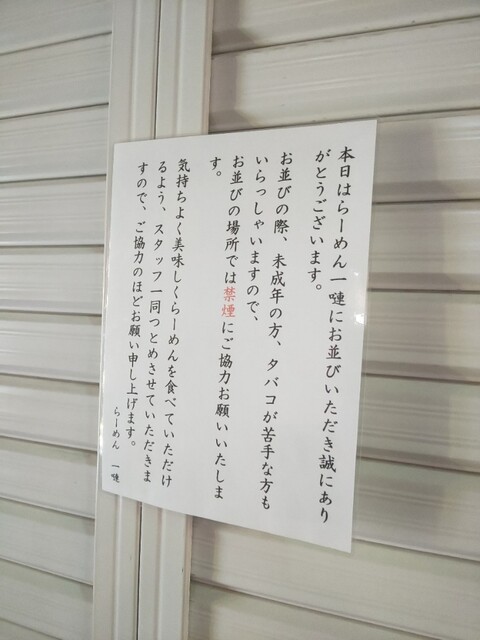 本日はらーめん一嗹にお並びいただき誠にあり
がとうございます。
お並びの際、未成年の方、タバコが苦手な方も
いらっしゃいますので、
お並びの場所では禁煙にご協力お願いいたしま
す。
気持ちよく美味しくらーめんを食べていただけ
るよう、スタッフ一同つとめさせていただきま
すので、ご協力のほどお願い申し上げます。
らーめん 一嗹